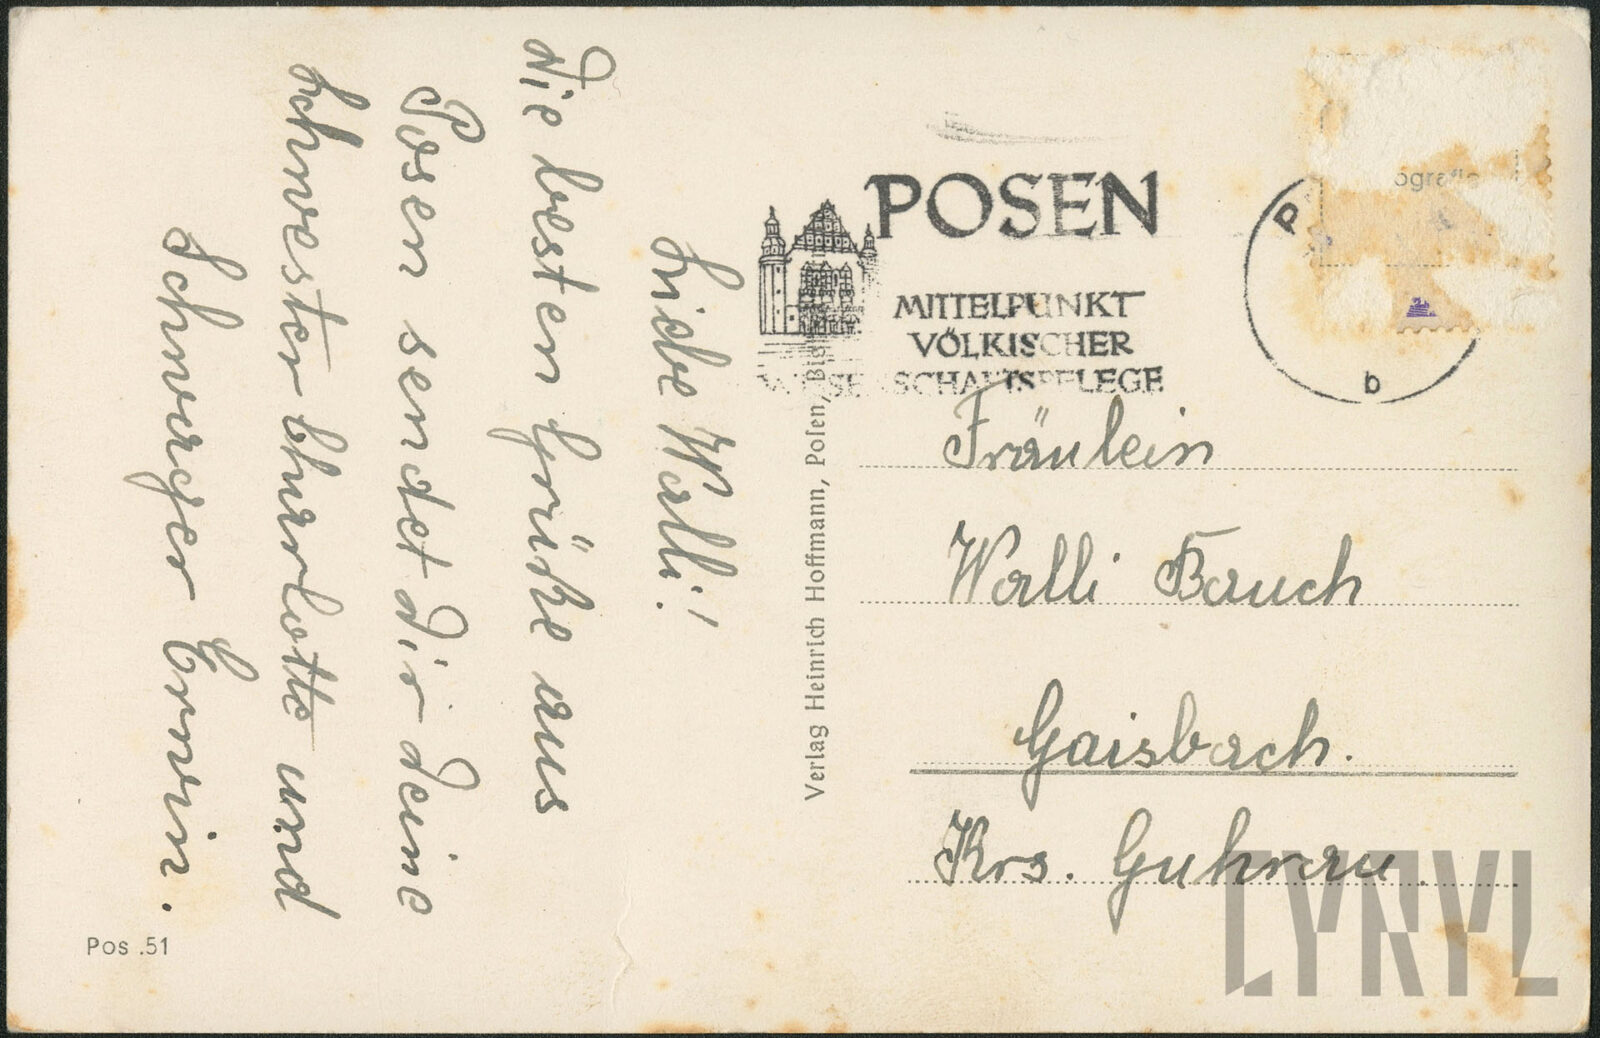 Liebe Walli!
die besten Grüße aus
Posen sendet dir deine
Schwester Charlotte und
Schwager Erwin.
Pos .51
Verlag Heinrich Hoffmann, Posen,
POSEN
MITTELPUNKT
VÖLKISCHER
WISSENSCHAFTSPFLEGE
P
b
Fräulein
Walli Bauch
Gaisbach.
Krs. Guhrau.
LYNYL